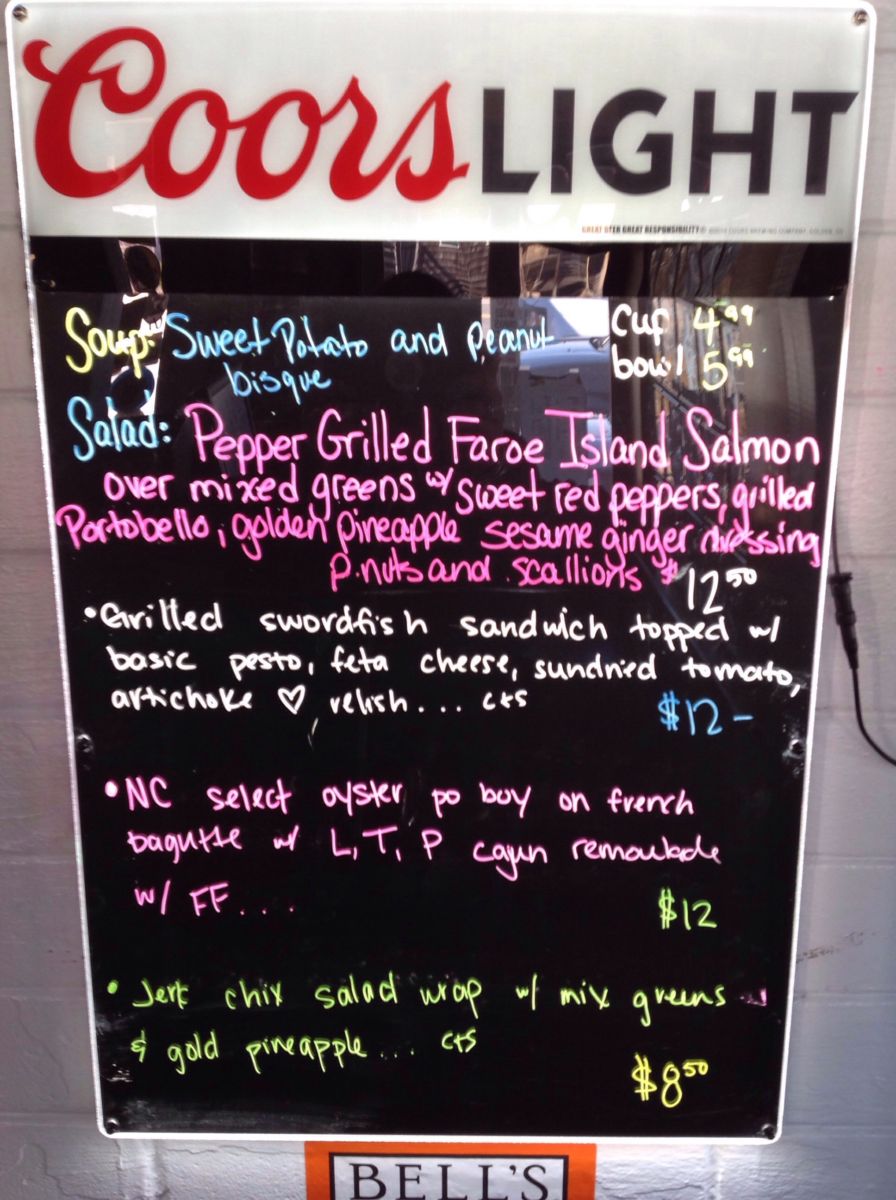 Coors LIGHT
GREAT BEER GREAT RESPONSIBILITY® COORS BREWING COMPANY, GOLDEN, CO
Soup: Sweet Potato and peanut
bisque
cup 4.99
bowl 5.99
Salad: Pepper Grilled Faroe Island Salmon
over mixed greens w/ sweet red peppers, grilled
Portobello, golden pineapple sesame ginger dressing
p.nuts and scallions $12.50
•Grilled swordfish sandwich topped w/
basic pesto, feta cheese, sundried tomato,
artichoke ♡ relish... cts
$12-
•NC select oyster po boy on french
bagutte w/ L, T, P cajun remoulade
w/ FF....
$12
• Jerk chix salad wrap w/ mix greens
& gold pineapple... cts
$8.50
BELL'S